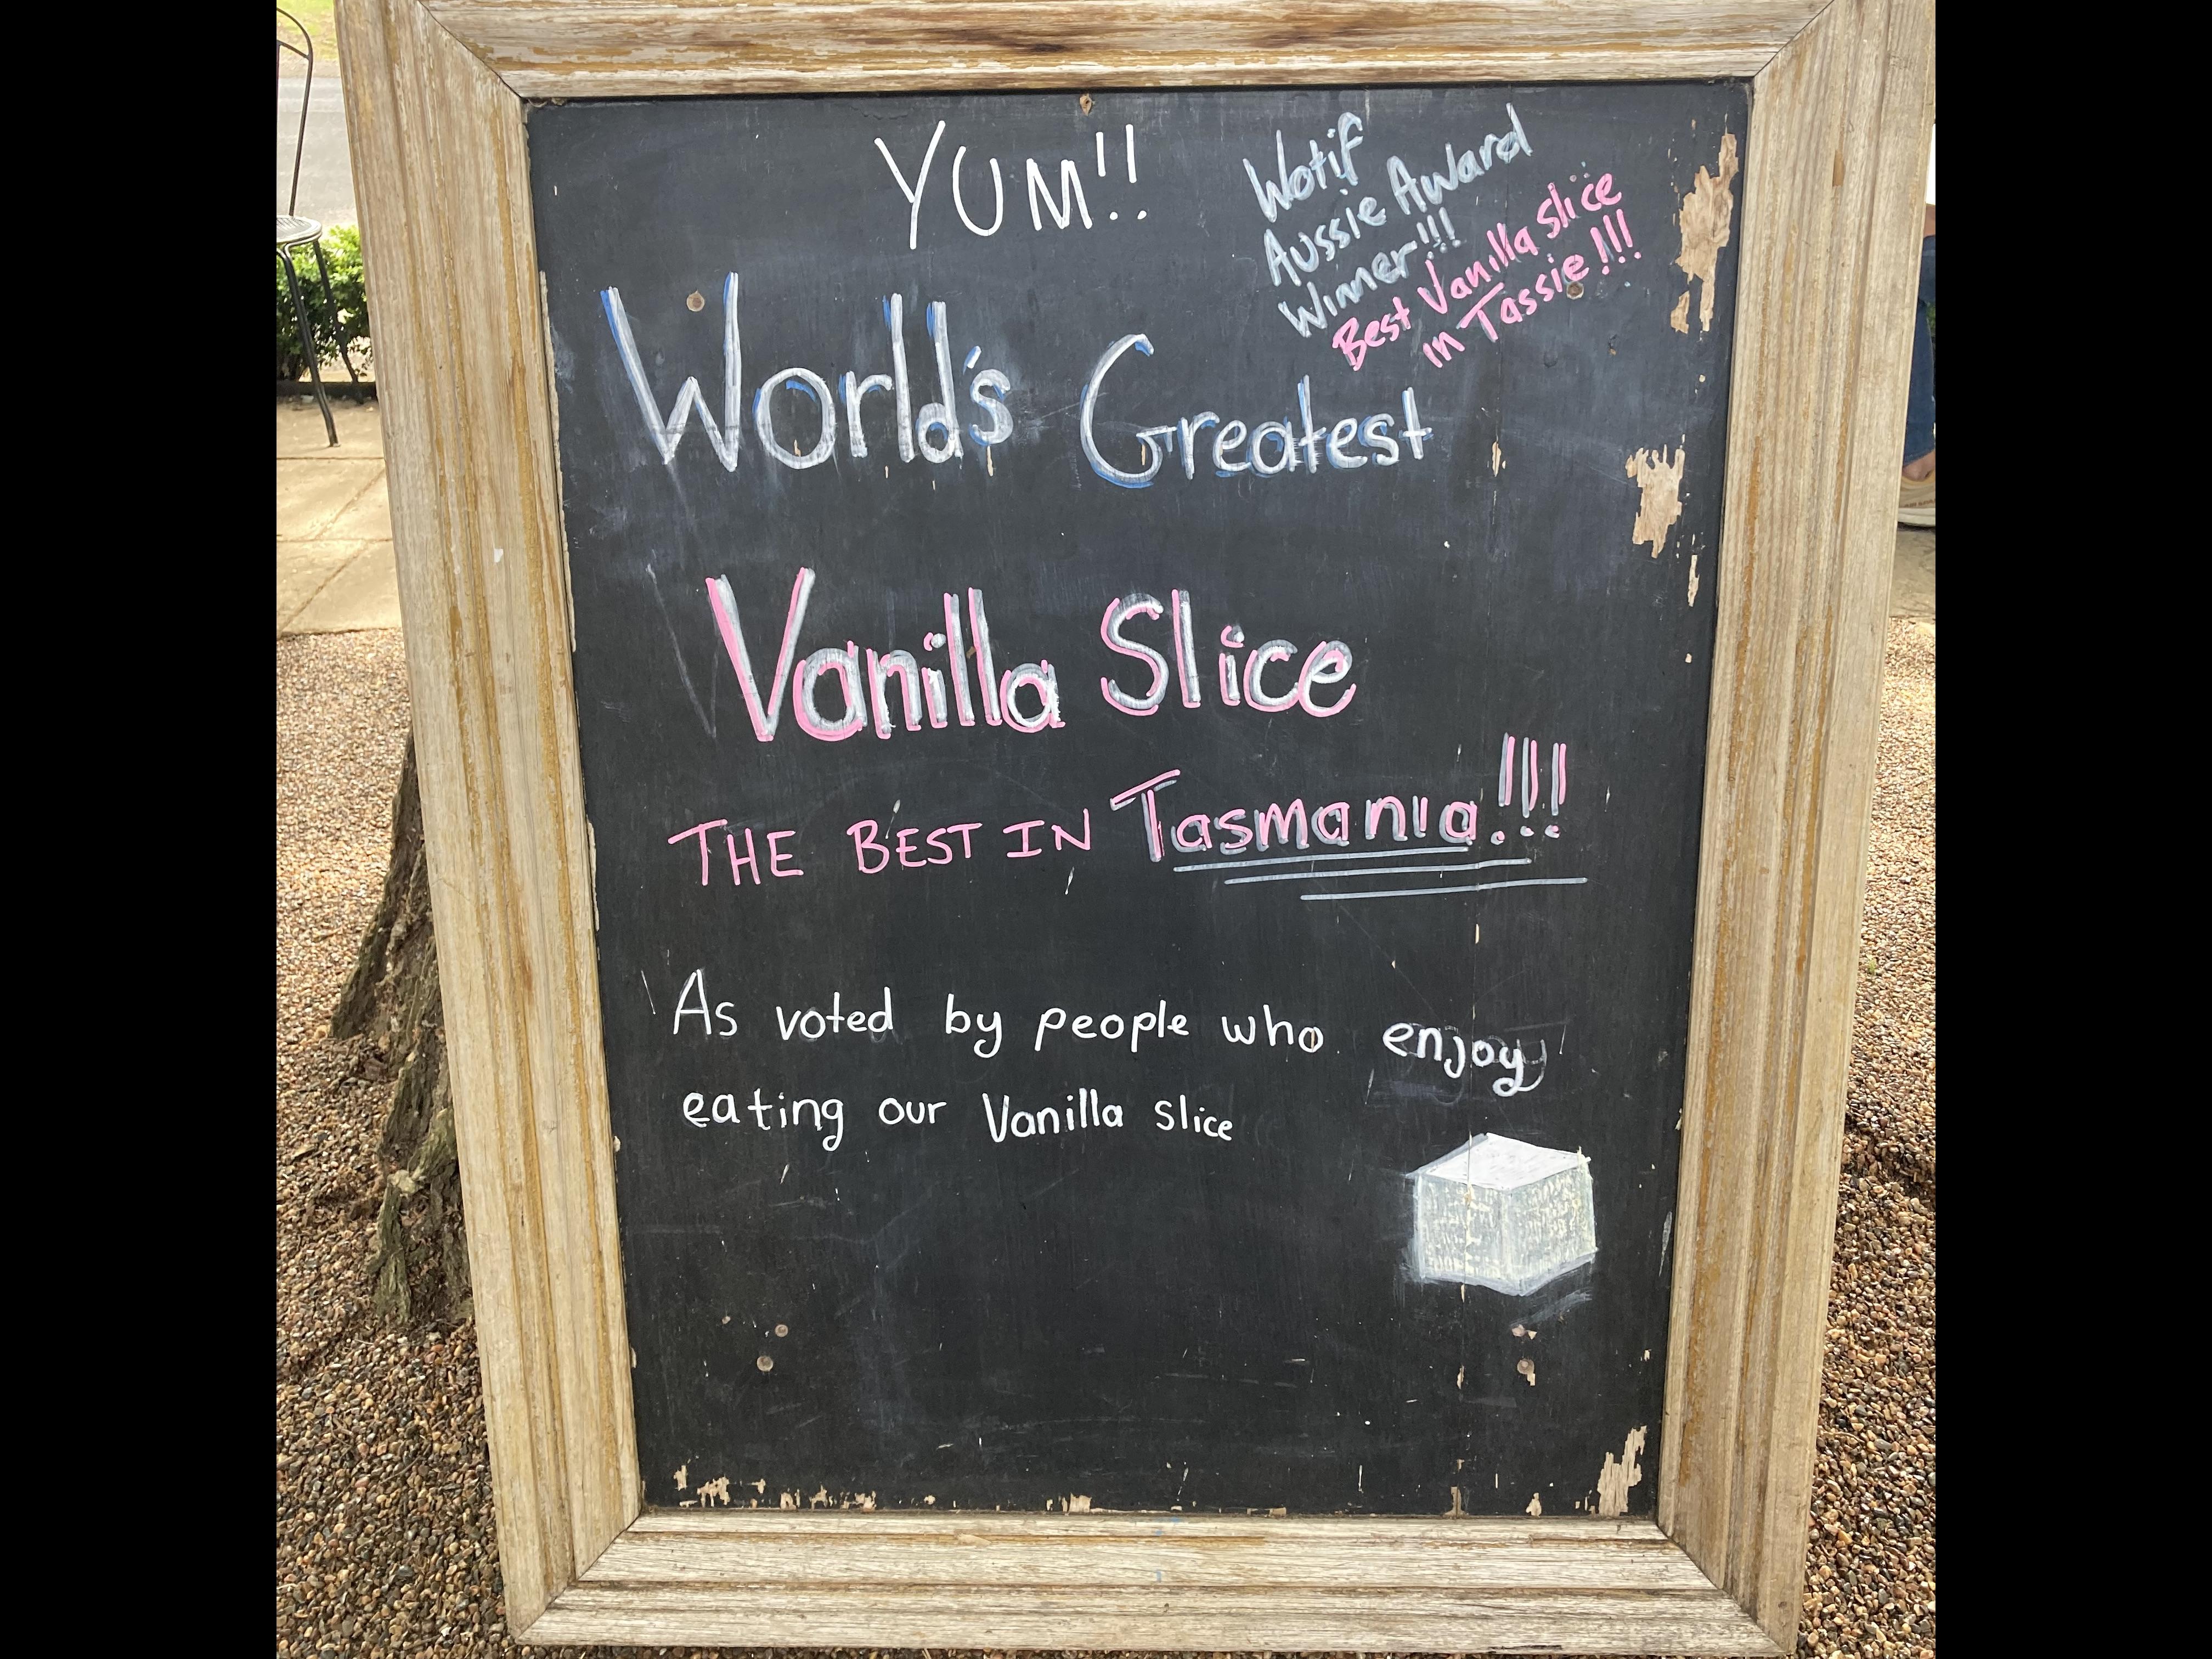 YUM!!
Wotif
Aussie Award
Winner!!!
Best Vanilla Slice
in Tassie!!!
World's Greatest
Vanilla Slice
THE BEST IN Tasmania!!!
As voted by people who enjoy
eating our Vanilla slice